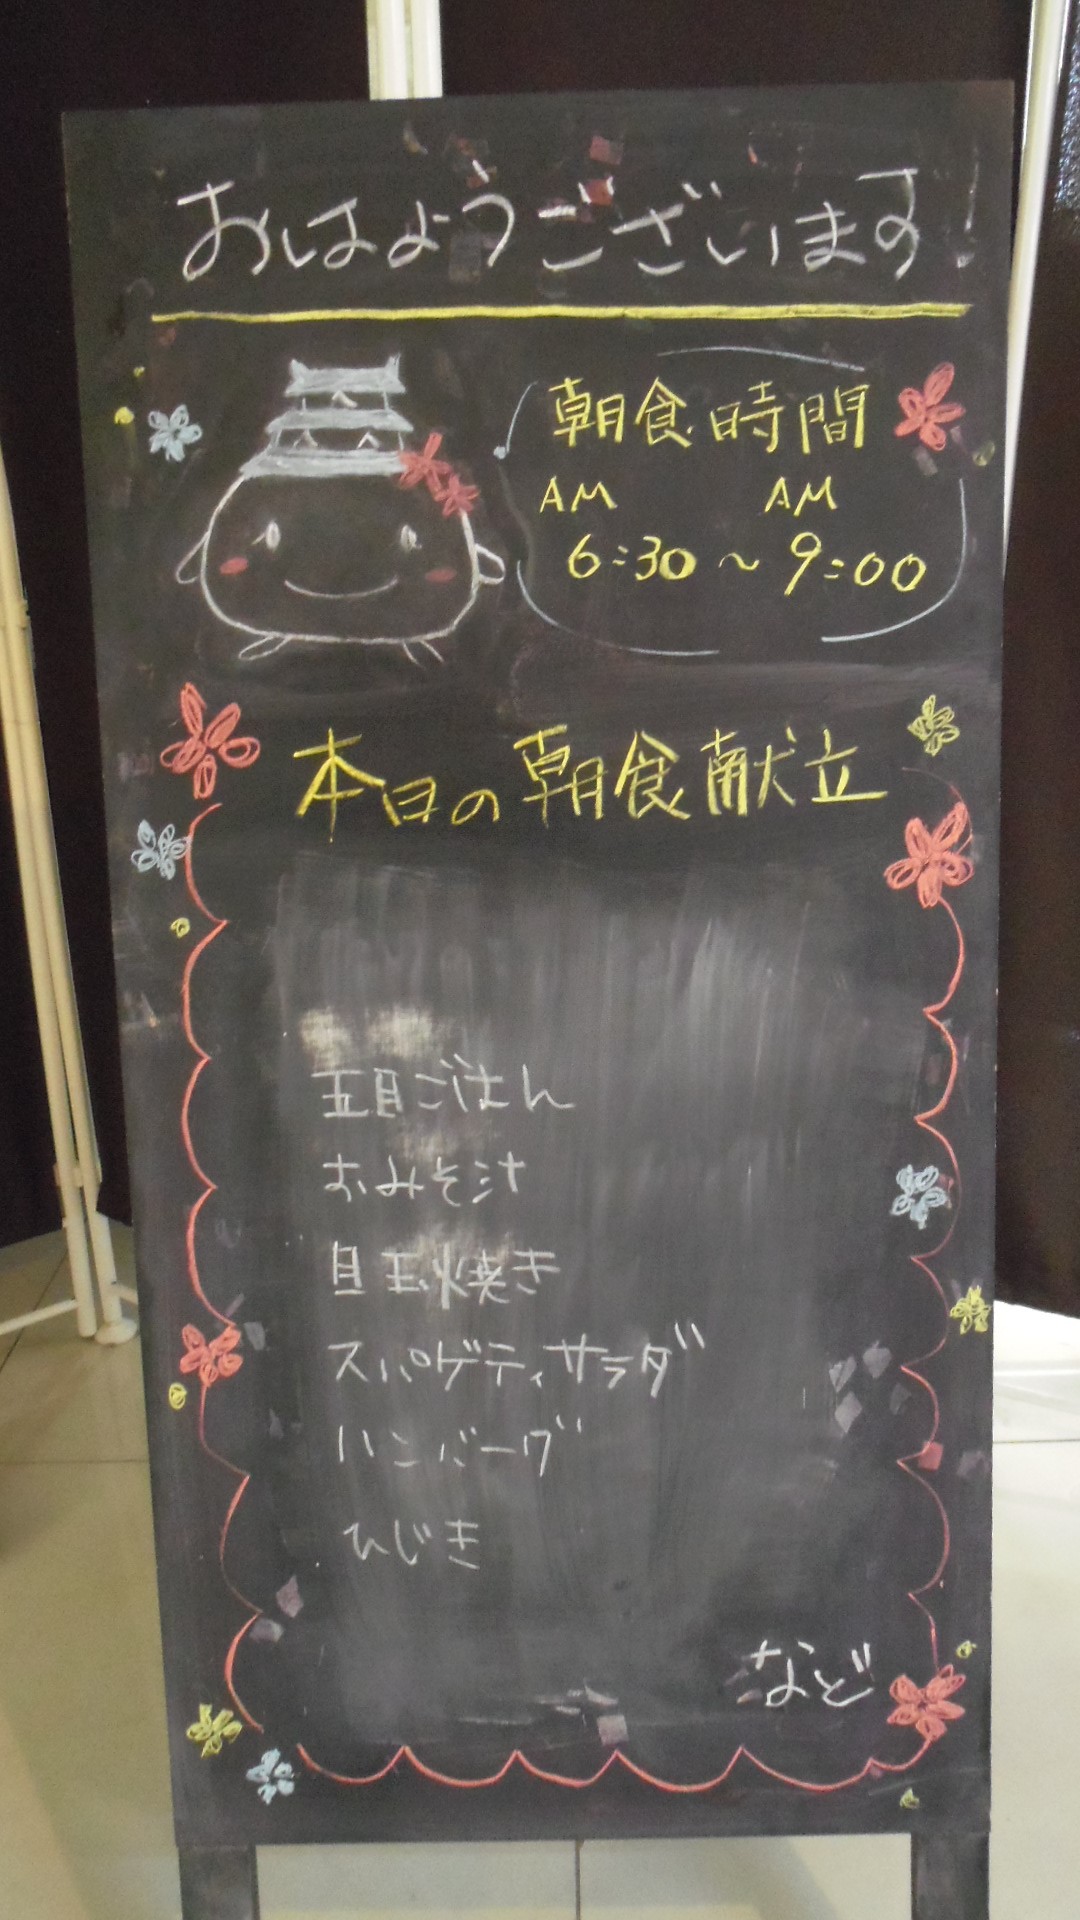 おはようございます!
朝食時間
AM AM
6:30〜9:00
本日の朝食献立
五目ごはん
おみそ汁
目玉焼き
スパゲティサラダ
ハンバーグ
ひじき
など